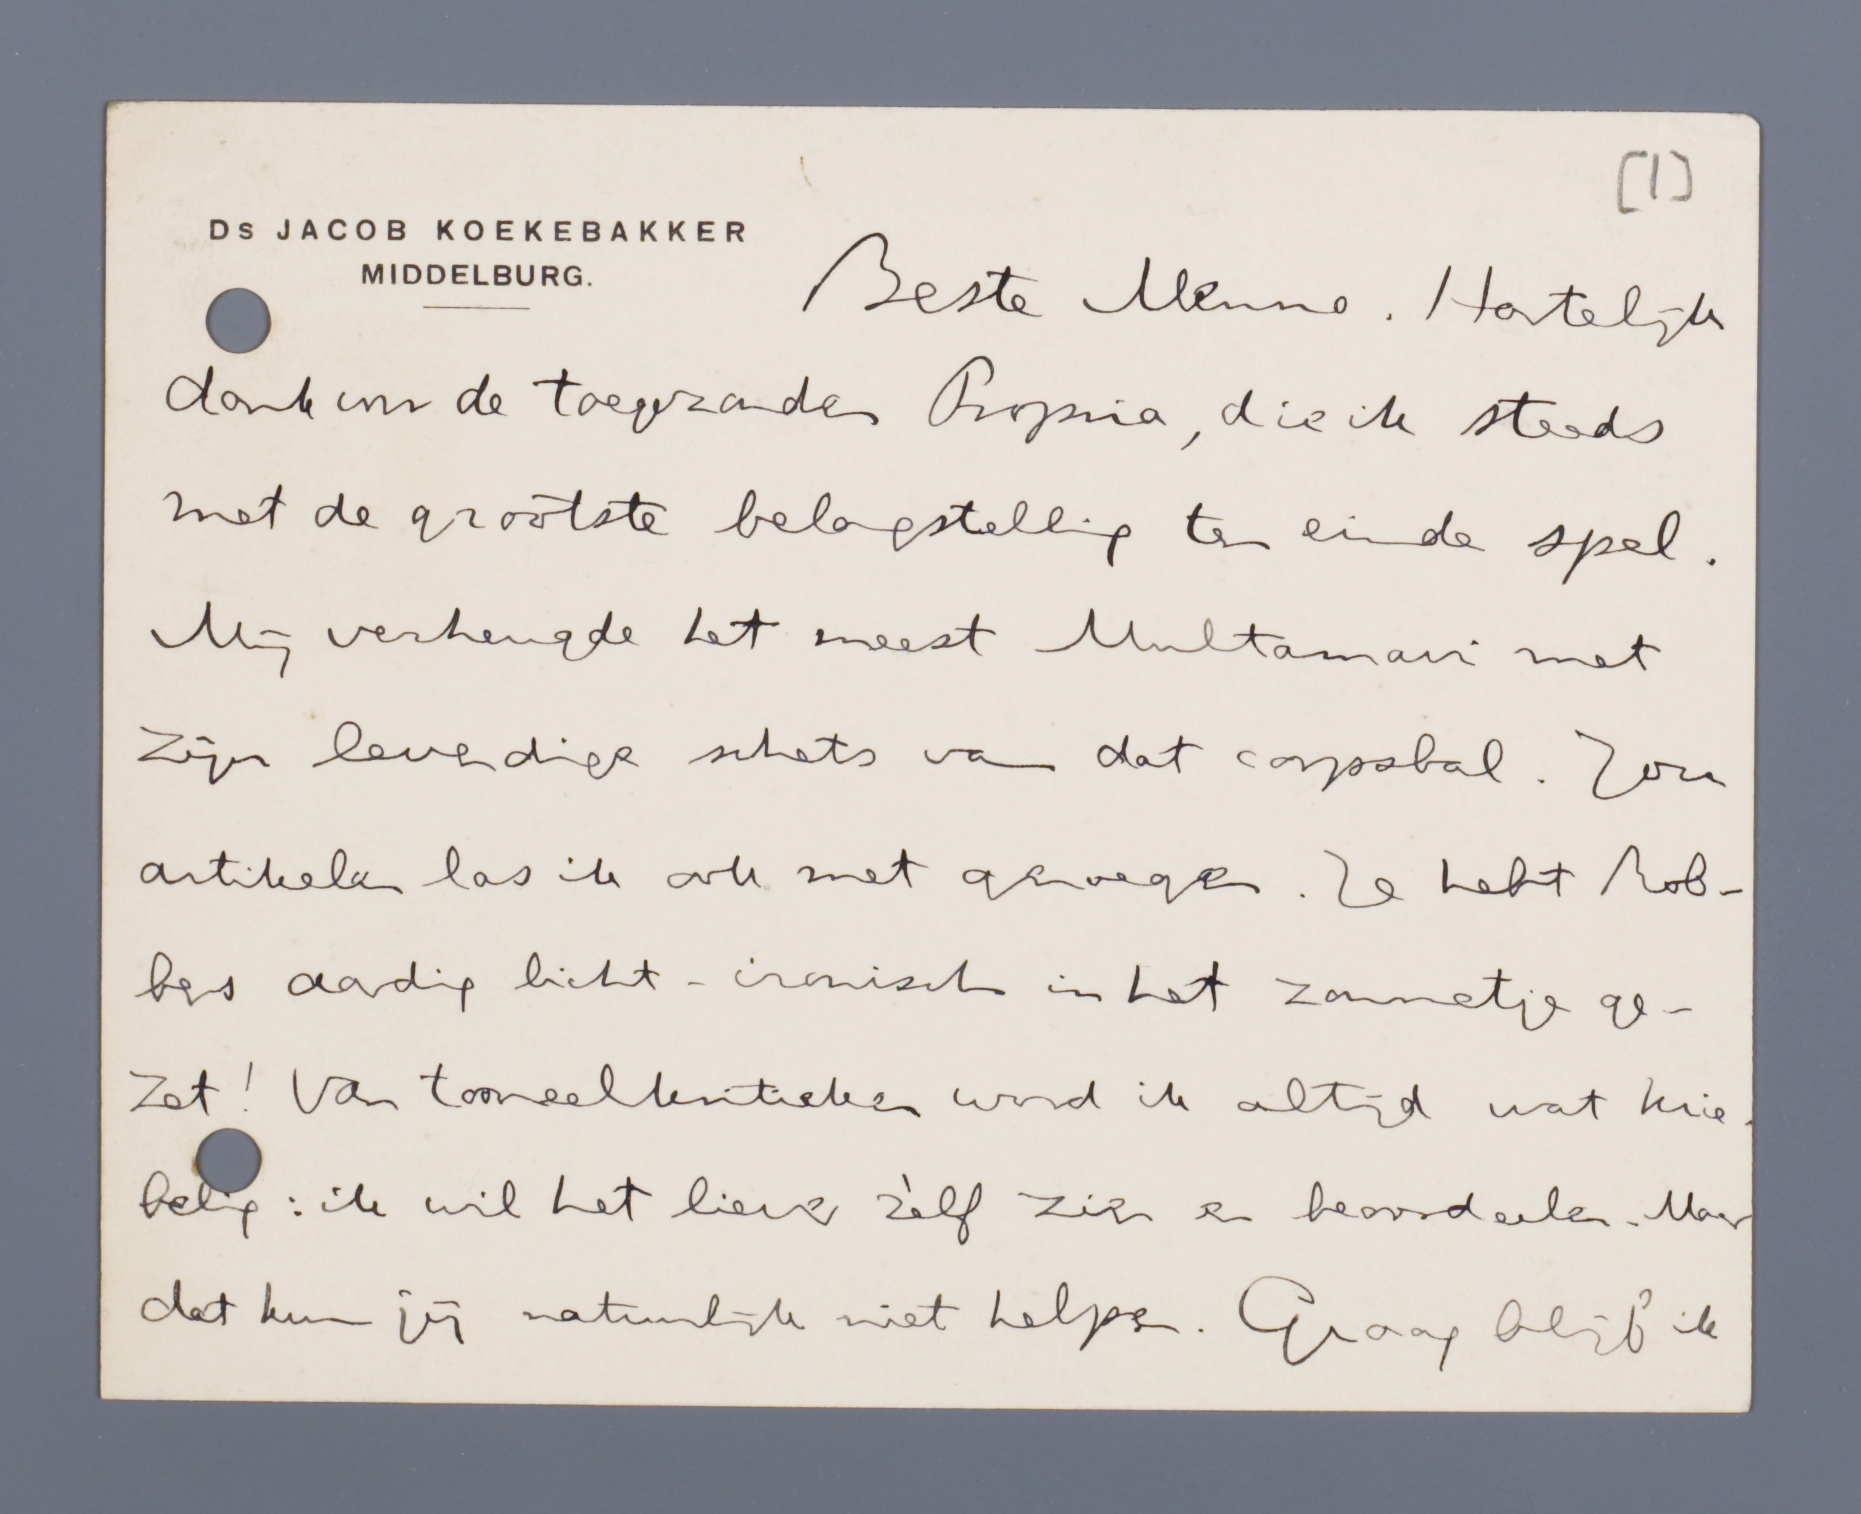 [1]
Ds JACOB KOEKEBAKKER
MIDDELBURG.
Beste Menno. Hartelijk
dank voor de toegezonden Propria, die ik steeds
met de grootste belangstelling ten einde spel.
Mij verheugde het meest Multamavi met
zijn levendige schets van dat corpsbal. Jou
artikelen las ik ook met genoegen. Je hebt Rob-
bers aardig licht-ironisch in het zonnetje ge-
zet! Van tooneelkritieken word ik altijd wat krie-
belig: ik wil het liever zèlf zien en beoordeelen. Maar
dat kun jij natuurlijk niet helpen. Graag blijf ik